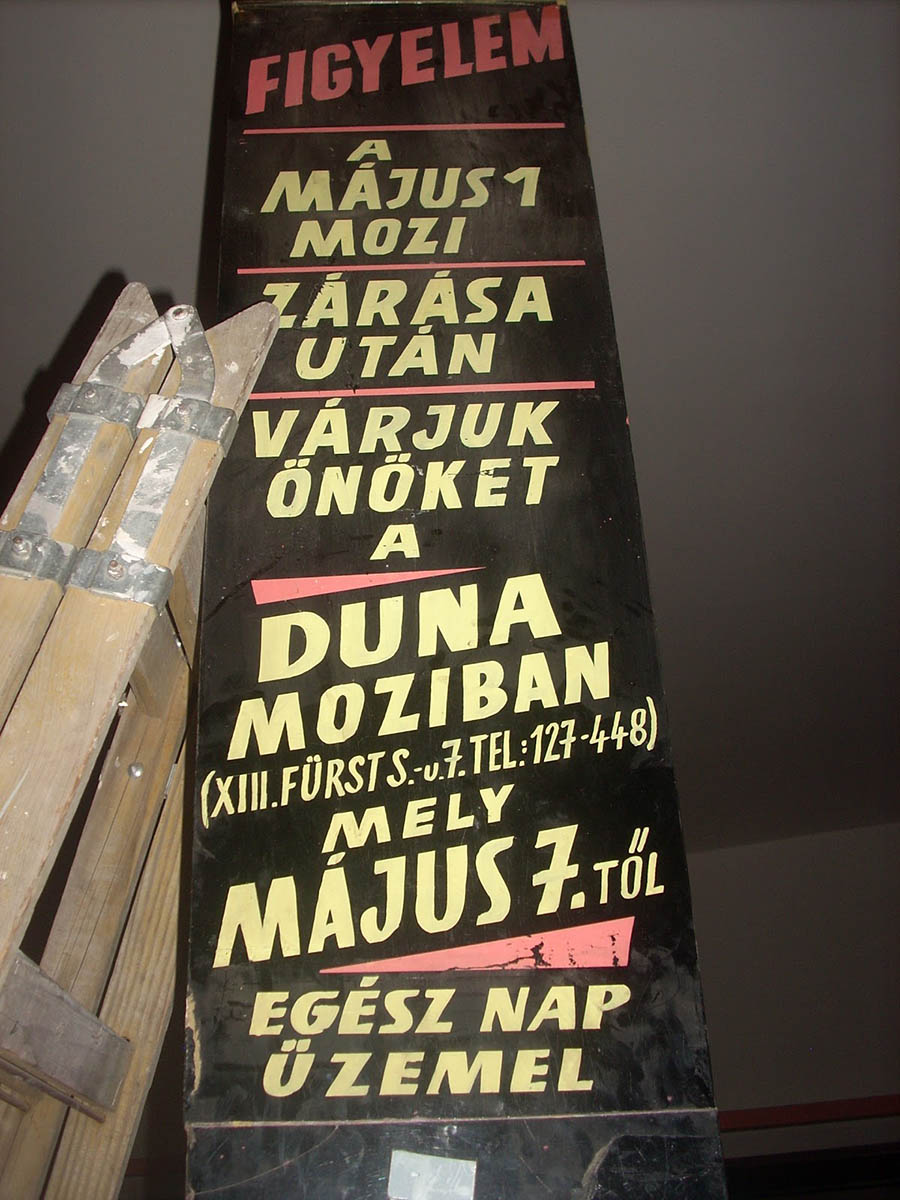 FIGYELEM
A
MÁJUS 1
MOZI
ZÁRÁSA
UTÁN
VÁRJUK
ÖNÖKET
A
DUNA
MOZIBAN
(XIII. FÜRST S.-u. 7. TEL.: 127-448)
MELY
MÁJUS 7. TŐL
EGÉSZ NAP
ÜZEMEL